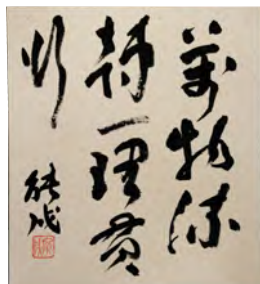 萬物流
轉一理貫
行
能成